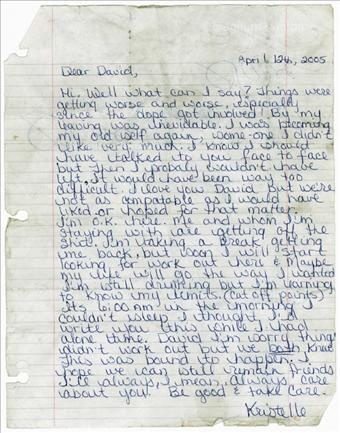 April 12th, 2005
Dear David,
Hi. Well what can I say? Things were
getting worse and worse, especially
since the dope got involved! But my
leaving was inevidable. I was becoming
my old self again, some-one I didn't
like very much. I know I should
have talked to you face to face
but then I probaly wouldn't have
left. It would have been way too
difficult. I love you David but we're
not as compatable as I would have
liked or hoped for that matter.
I'm O.K. here. Me and whom I'm
staying with are getting off the
shit. I'm taking a break, getting
me back, but soon I will start
looking for work out there & maybe
my life will go the way I wanted
I'm still drinking but I'm learning
to know my limits. (Cut off points)
Its 6:00AM in the morning I
couldn't sleep I thought I'd
write you this while I had
alone time. David I'm sorry things
didn't work out but we both knew
this was bound to happen. I
hope we can still remain friends
I'll always, I mean, always, care
about you. Be good & take care.
Kristelle